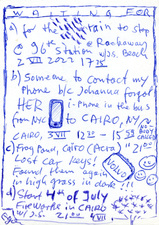 WAITING FOR
a) for the train to stop
@ 90th Station @ Rockaway
2 VII 2022 1725 w/J.S. Beach
b) Someone to contact my
phone b/c Johanna forgot
HER i-Phone in the bus
from NYC to CAIRO, NY
CAIRO, 3 VII 1230 - 1559
c) Frog Point, Cairo (Acra) 2100
Lost car keys!
Found them again
in high grass in dark
VOLVO
d) Start 4th of July
Fireworks in CAIRO
w/ J.S. 2100 4 VII